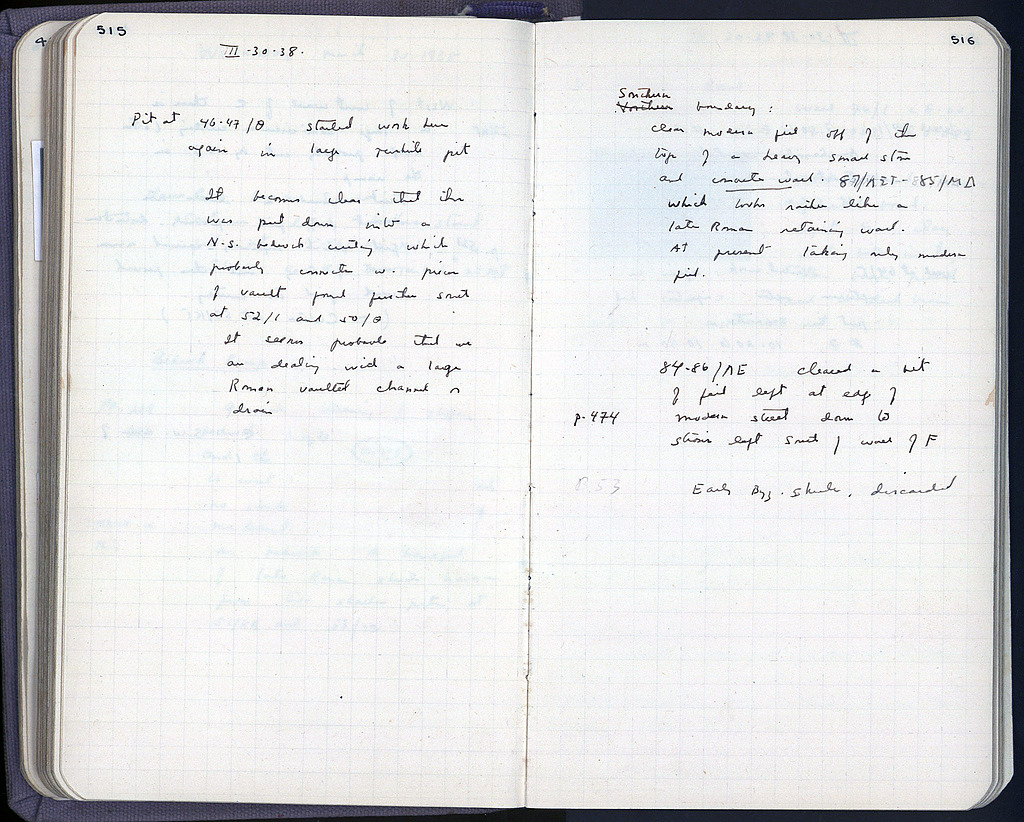 515
III·30·38.
Pit at 46-47/Θ started work here
again in large rubbish pit
It becomes clear that this
was put down into a
N-S. bedrock cutting which
probably connects w. piece
of vault found further south
at 52/I and 50/Θ
It seems probable that we
are dealing with a large
Roman vaulted channel or
drain
516
Southern
Northern boundary:
clear modern fill off of the
top of a heavy small stone
and concrete wall. 87/ - 85/ΜΔ
which looks rather like a
late Roman retaining wall.
At present taking only modern
fill.
84-86/ΛΕ cleared a bit
of fill left at edge of
p. 474 modern street down to
strosis left south of wall of F
53 Early Byz. sherds, discarded